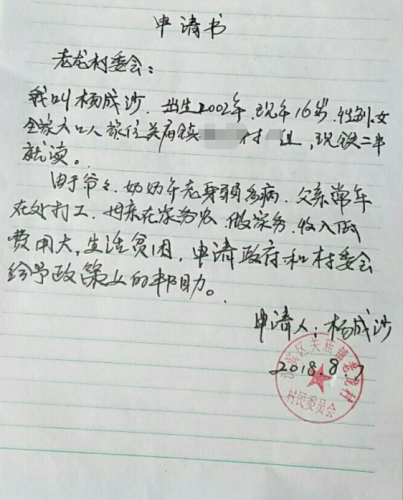 申请书
老龙村委会：
我叫杨成沙，出生2002年，现年16岁，性别：女
全家六口人，家住关庙镇 村 组，现读二年
就读。
由于爷爷、奶奶年老身弱多病，父亲常年
在外打工，母亲在家务农，做家务，收入低
费用大，生活贫困，申请政府和村委会
给予政策上的帮助。
申请人：杨成沙
2018.8.7
区关庙镇老龙村
村民委员会